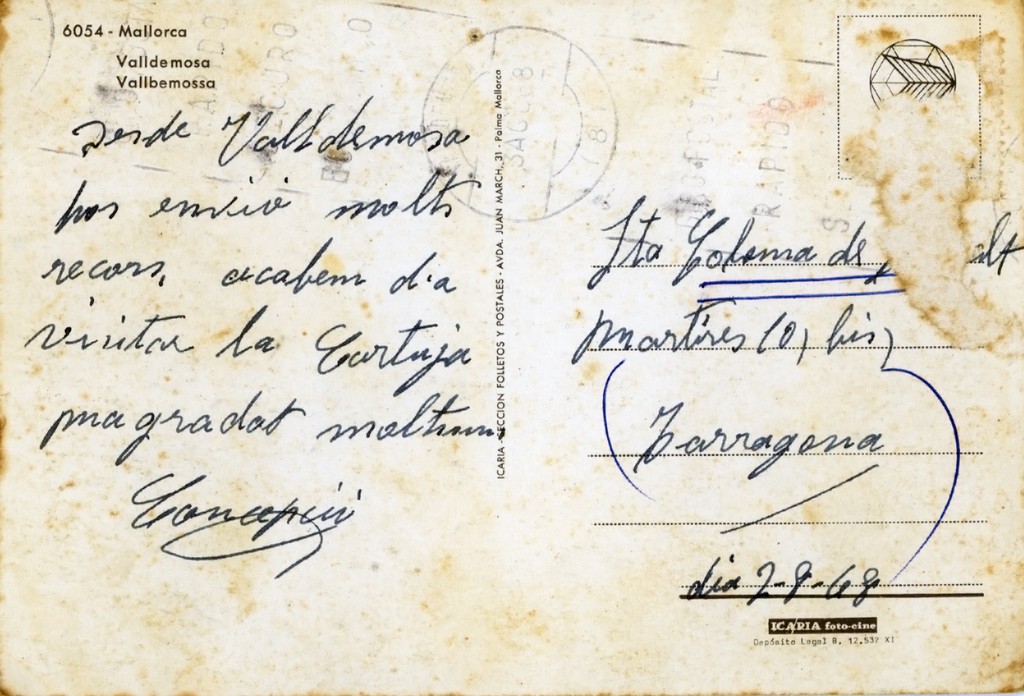 6054 - Mallorca
Valldemosa
Vallbemossa
desde Valldemosa
hos envio molts
recors, acabem d'a
visitar la Cartuja
ma gradat moltisim
Concepció
ICARIA - SECCION FOLLETOS Y POSTALES - AVDA. JUAN MARCH, 31 - Palma Mallorca
3 AGO 68
RAPIDO
Sta Coloma de
alt
Martires 10, bis,
Tarragona
dia 2-8-68
ICARIA foto-cine
Depósito Legal B. 12.537 XI